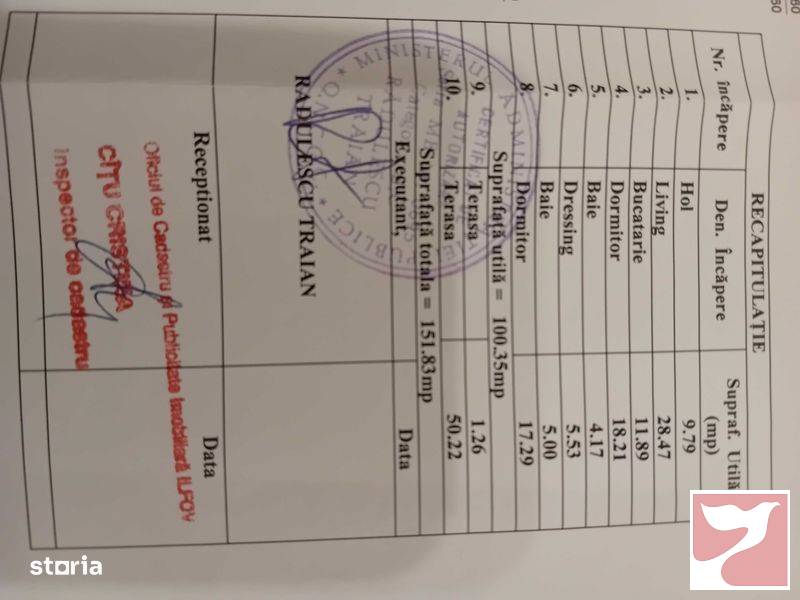 RECAPITULAȚIE
Nr. încăpere Den. Încăpere Supraf. Utilă (mp)
1. Hol 9.79
2. Living 28.47
3. Bucatarie 11.89
4. Dormitor 18.21
5. Baie 4.17
6. Dressing 5.53
7. Baie 5.00
8 Dormitor 17.29
Suprafață utilă = 100.35mp
9. Terasa 1.26
10. Terasa 50.22
Suprafață totala = 151.83mp
Executant, Data
RADULESCU TRAIAN
Receptionat Data
Oficiul de Cadastru și Publicitate Imobiliară ILFOV
CÎȚU CRISTINA
Inspector de cadastru
storia